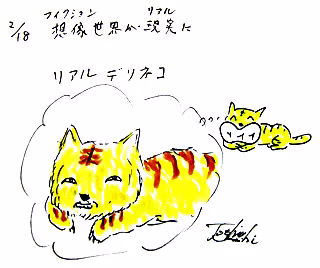 フィクション リアル
2/18 想像世界が現実に
リアルデリネコ